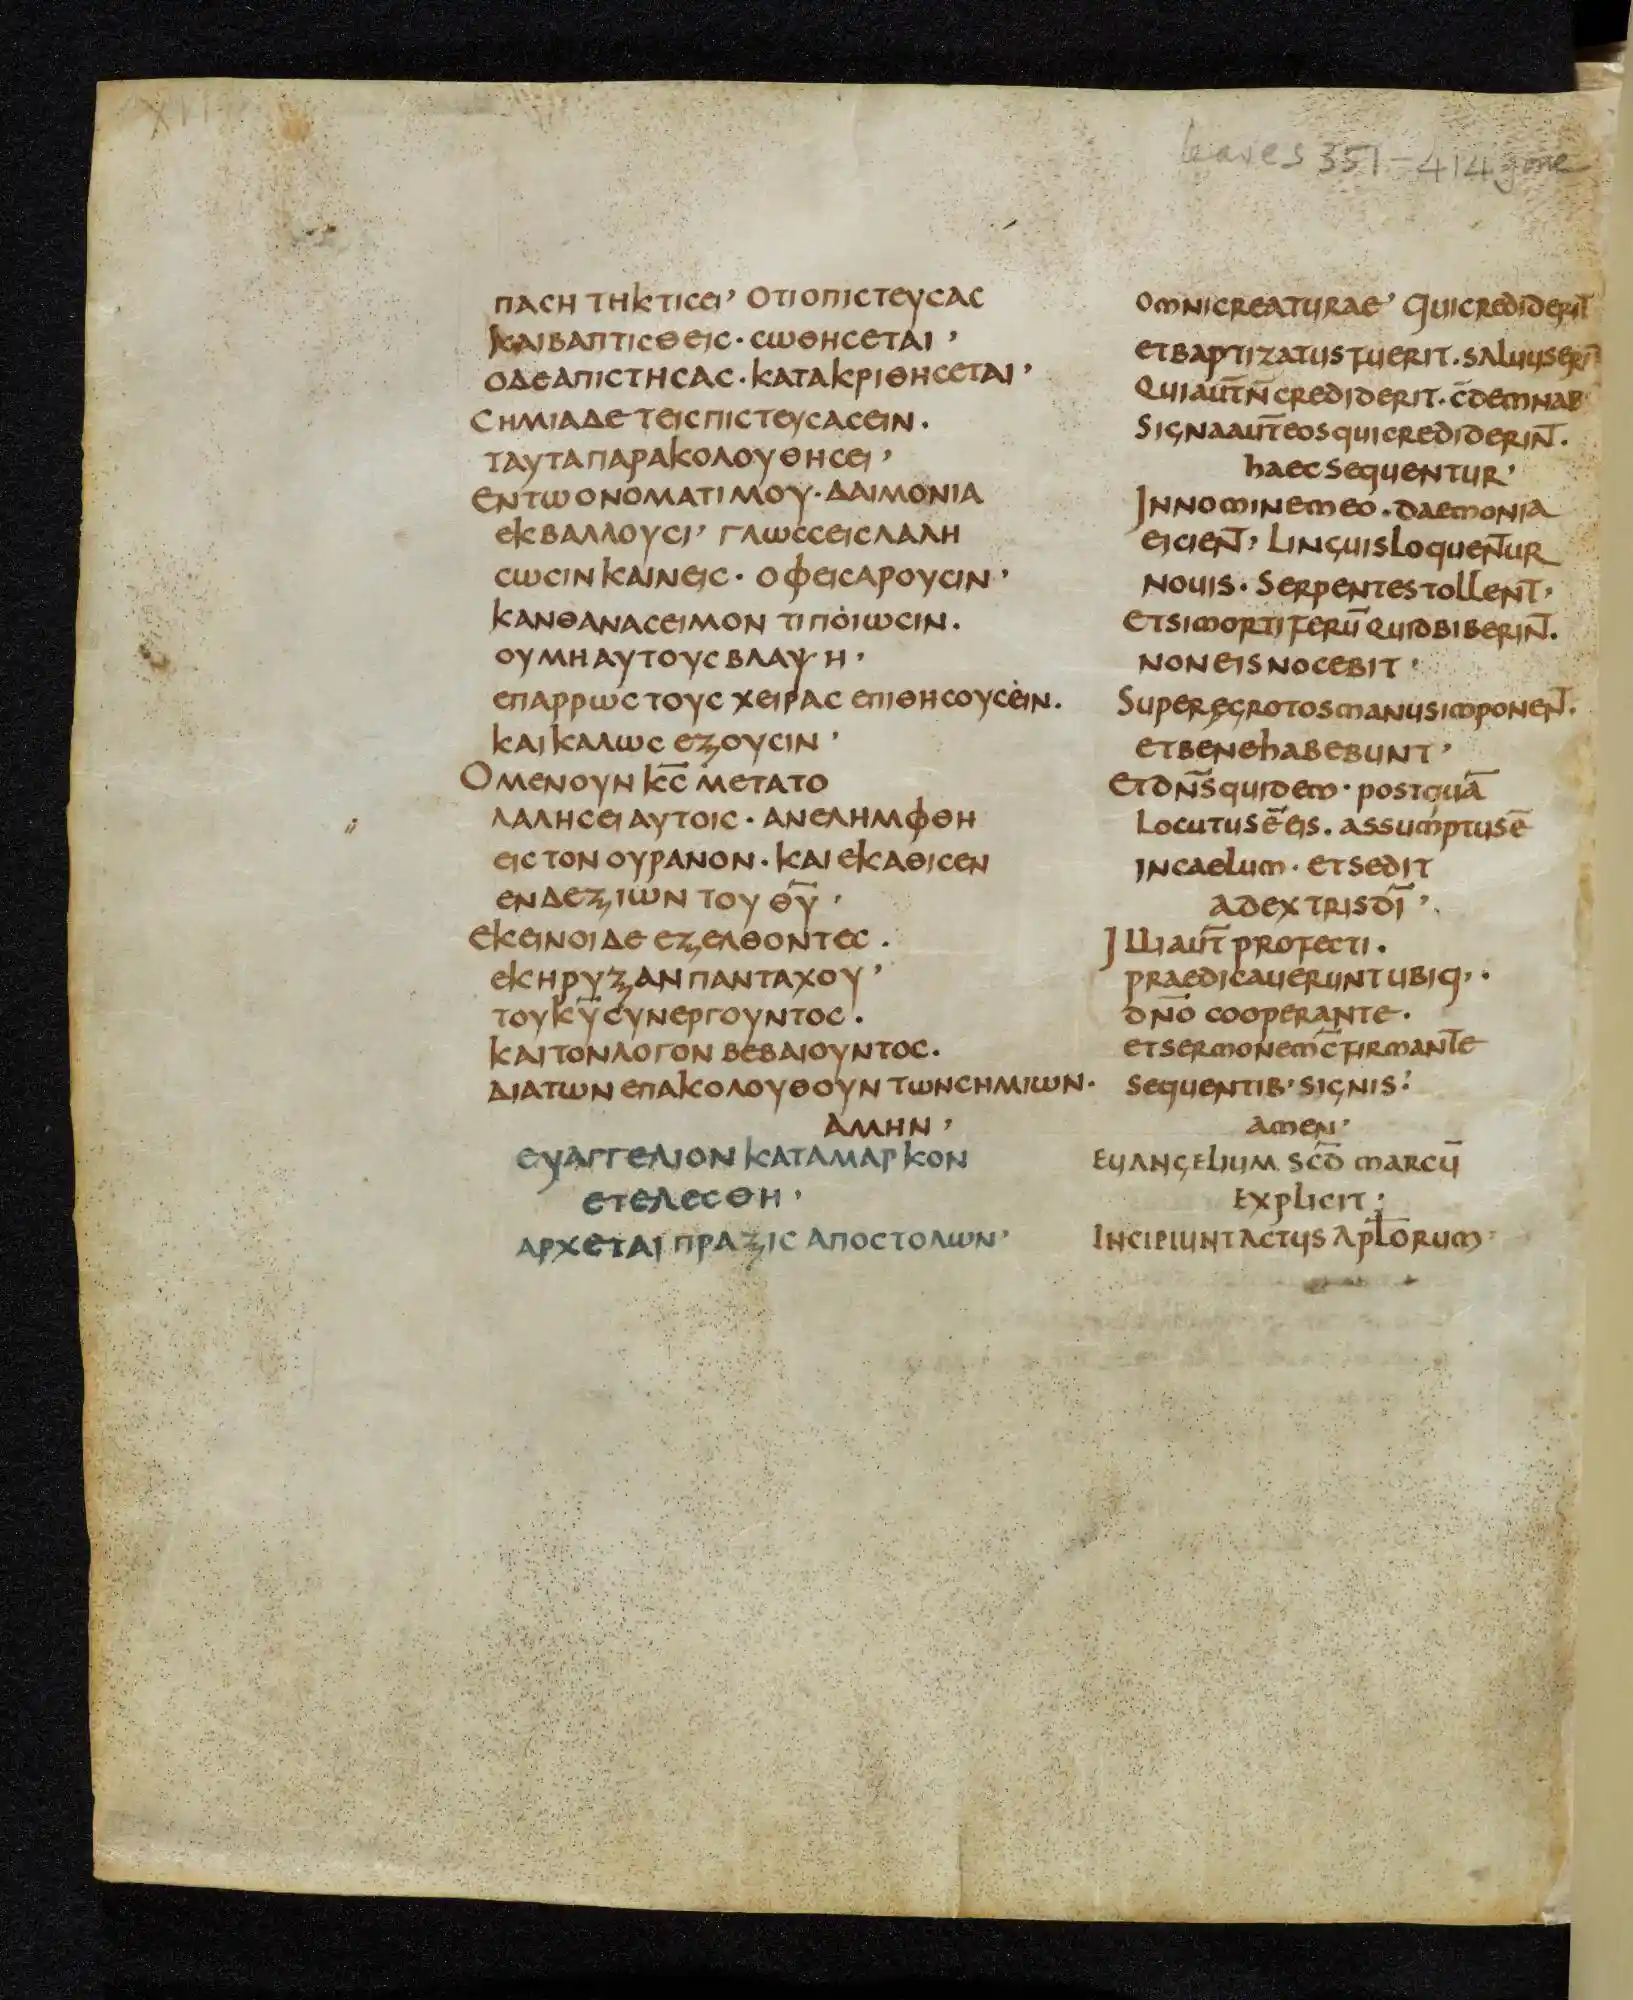 leaves 351-414 gone
ΠΑCΗ ΤΗ ΚΤΙCΕΙ’ ΟΤΙ Ο ΠΙCΤΕΥCΑC
ΚΑΙ ΒΑΠΤΙCΘΕΙC· CΩΘΗCΕΤΑΙ’
Ο ΔΕ ΑΠΙCΤΗCΑC· ΚΑΤΑΚΡΙΘΗCΕΤΑΙ’
CΗΜΙΑ ΔΕ ΤΕΙC ΠΙCΤΕΥCΑCΕΙΝ·
ΤΑΥΤΑ ΠΑΡΑΚΟΛΟΥΘΗCΕΙ’
ΕΝ ΤΩ ΟΝΟΜΑΤΙ ΜΟΥ· ΔΑΙΜΟΝΙΑ
ΕΚΒΑΛΛΟΥCΙ’ ΓΛΩCCΕΙC ΛΑΛΗ
CΩCΙΝ ΚΑΙΝΕΙC· ΟΦΕΙC ΑΡΟΥCΙΝ’
ΚΑΝ ΘΑΝΑCΕΙΜΟΝ ΤΙ ΠΟΙΩCΙΝ·
ΟΥ ΜΗ ΑΥΤΟΥC ΒΛΑΨΗ’
ΕΠ ΑΡΡΩC ΤΟΥC ΧΕΙΡΑC ΕΠΙΘΗCΟΥCΕΙΝ·
ΚΑΙ ΚΑΛΩC ΕΞΟΥCΙΝ’
Ο ΜΕΝ ΟΥΝ Κ̅C̅ ΜΕΤΑ ΤΟ
ΛΑΛΗCΕΙ ΑΥΤΟΙC· ΑΝΕΛΗΜΦΘΗ
ΕΙC ΤΟΝ ΟΥΡΑΝΟΝ· ΚΑΙ ΕΚΑΘΙCΕΝ
ΕΝ ΔΕΞΙΩΝ ΤΟΥ Θ̅Υ̅’
ΕΚΕΙΝΟΙ ΔΕ ΕΞΕΛΘΟΝΤΕC·
ΕΚΗΡΥΞΑΝ ΠΑΝΤΑΧΟΥ’
ΤΟΥ Κ̅Υ̅ CΥΝΕΡΓΟΥΝΤΟC·
ΚΑΙ ΤΟΝ ΛΟΓΟΝ ΒΕΒΑΙΟΥΝΤΟC·
ΔΙΑ ΤΩΝ ΕΠΑΚΟΛΟΥΘΟΥΝΤΩΝ CΗΜΙΩΝ·
ΑΜΗΝ’
ΕΥΑΓΓΕΛΙΟΝ ΚΑΤΑ ΜΑΡΚΟΝ
ΕΤΕΛΕCΘΗ’
ΑΡΧΕΤΑΙ ΠΡΑΞΙC ΑΠΟCΤΟΛΩΝ’
omni creaturae’ Qui crediderit̅
et baptizatus fuerit. saluus
Qui aut̅ n̅ crediderit. c̅demnab
Signa aut̅ eos qui crediderin̅t.
haec sequentur’
In nomine meo. daemonia
eicien̅t’ Linguis loquen̅tur
nouis. Serpentes tollen̅t’
Et si mortiferu̅ quid biberin̅t.
non eis nocebit’
Super egrotos manus imponen̅t.
et bene habebunt’
Et dn̅s quidem. postqua̅
locutus e̅ eis. assumptus e̅
in caelum. et sedit
a dextris di̅’
Illi aut̅ profecti.
praedicauerunt ubiq’.
dn̅o cooperante.
et sermonem c̅firman̅te
sequentib’ signis:
amen’
Euangelium scd̅ marcu̅
explicit:
Incipiunt actus apl̅orum